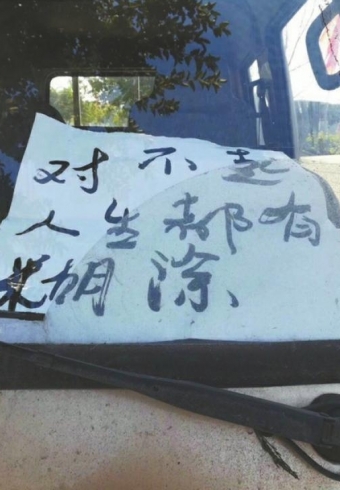 对不起
人生都有
糊涂